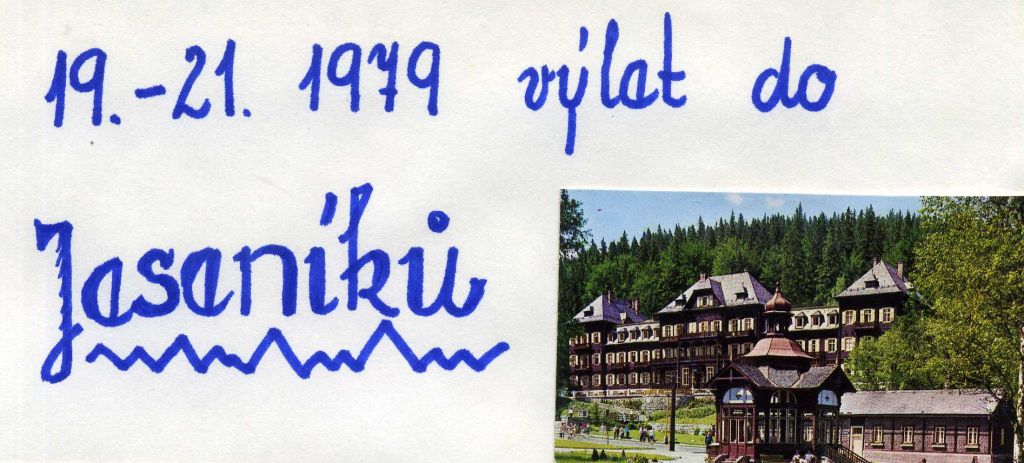 19.-21. 1979 výlet do
Jeseníků